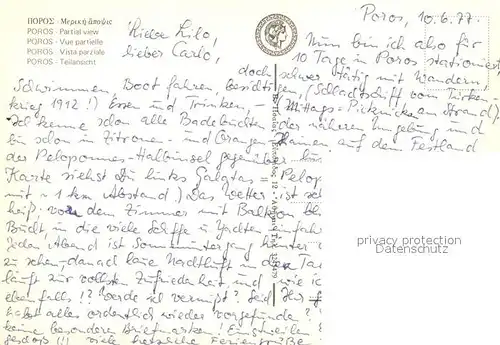 ΠΟΡΟΣ - Μερική άποψις
POROS - Partial view
POROS - Vue partielle
POROS - Vista parziale
POROS - Teilansicht
Poros, 10.6.77.
Liebe Lilo,
lieber Carlo,
Nun bin ich also für
10 Tage in Poros stationiert
doch schwer tätig mit Wandern,
Schwimmen, Boot fahren, besichtigen, (Schlachtschiff vom Türken-
krieg 1912!) Essen und Trinken, – Mittags-Picknick am Strand).
Ich kenne schon alle Badebuchten der näheren Umgebung und
bin schon in Zitronen- und Orangenhainen auf dem Festland
der Peloponnes-Halbinsel gegenüber
Karte siehst Du links Galatas = Pelop
mit ~ 1 km Abstand.) Das Wetter ist
heiß; von dem Zimmer mit Balkon
Bucht, in die viele Schiffe u. Yachten einfah
Jeden Abend ist Sonnenuntergang hinter
zu sehen, danach laue Nachtluft in
läuft zur vollsten Zufriedenheit, und wie
ebenfalls!? Werde ich vermißt? Seid
Habt alles ordentlich wieder vorgefunden?
keine besonderen Briefmarken!
viele herzliche Feriengrüße
privacy protection